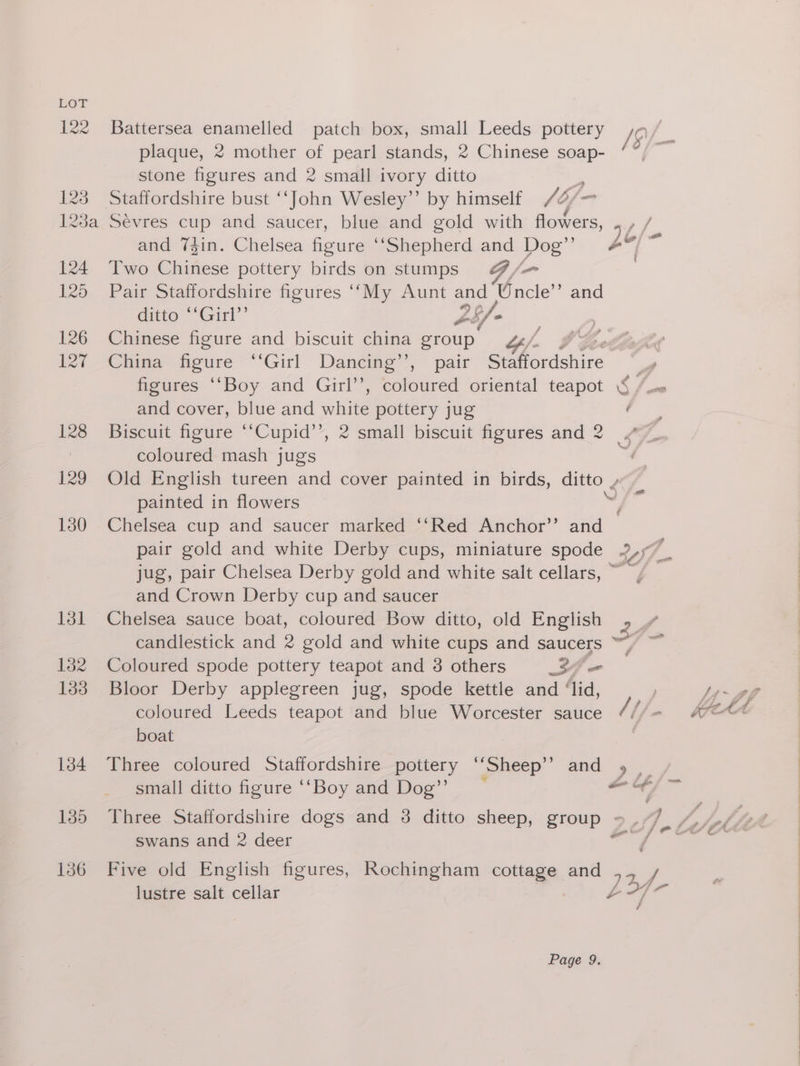 LOT
122 Battersea enamelled patch box, small Leeds pottery
plaque, 2 mother of pearl stands, 2 Chinese soap-
stone figures and 2 small ivory ditto
123 Staffordshire bust ‘‘John Wesley’’ by himself
123a Sèvres cup and saucer, blue and gold with flowers,
and 7½in. Chelsea figure ‘‘Shepherd and Dog’’
124 Two Chinese pottery birds on stumps
125 Pair Staffordshire figures ‘‘My Aunt and Uncle’’ and
ditto ‘‘Girl’’ 28/-
126 Chinese figure and biscuit china group
127 China figure ‘‘Girl Dancing’’, pair Staffordshire
figures ‘‘Boy and Girl’’, coloured oriental teapot
and cover, blue and white pottery jug
128 Biscuit figure ‘‘Cupid’’, 2 small biscuit figures and 2
coloured mash jugs
129 Old English tureen and cover painted in birds, ditto
painted in flowers
130 Chelsea cup and saucer marked ‘‘Red Anchor’’ and
pair gold and white Derby cups, miniature spode
jug, pair Chelsea Derby gold and white salt cellars,
and Crown Derby cup and saucer
131 Chelsea sauce boat, coloured Bow ditto, old English
candlestick and 2 gold and white cups and saucers
132 Coloured spode pottery teapot and 3 others
133 Bloor Derby applegreen jug, spode kettle and lid,
coloured Leeds teapot and blue Worcester sauce
boat
134 Three coloured Staffordshire pottery ‘‘Sheep’’ and
small ditto figure ‘‘Boy and Dog’’
135 Three Staffordshire dogs and 3 ditto sheep, group
swans and 2 deer
136 Five old English figures, Rochingham cottage and
lustre salt cellar
Page 9.